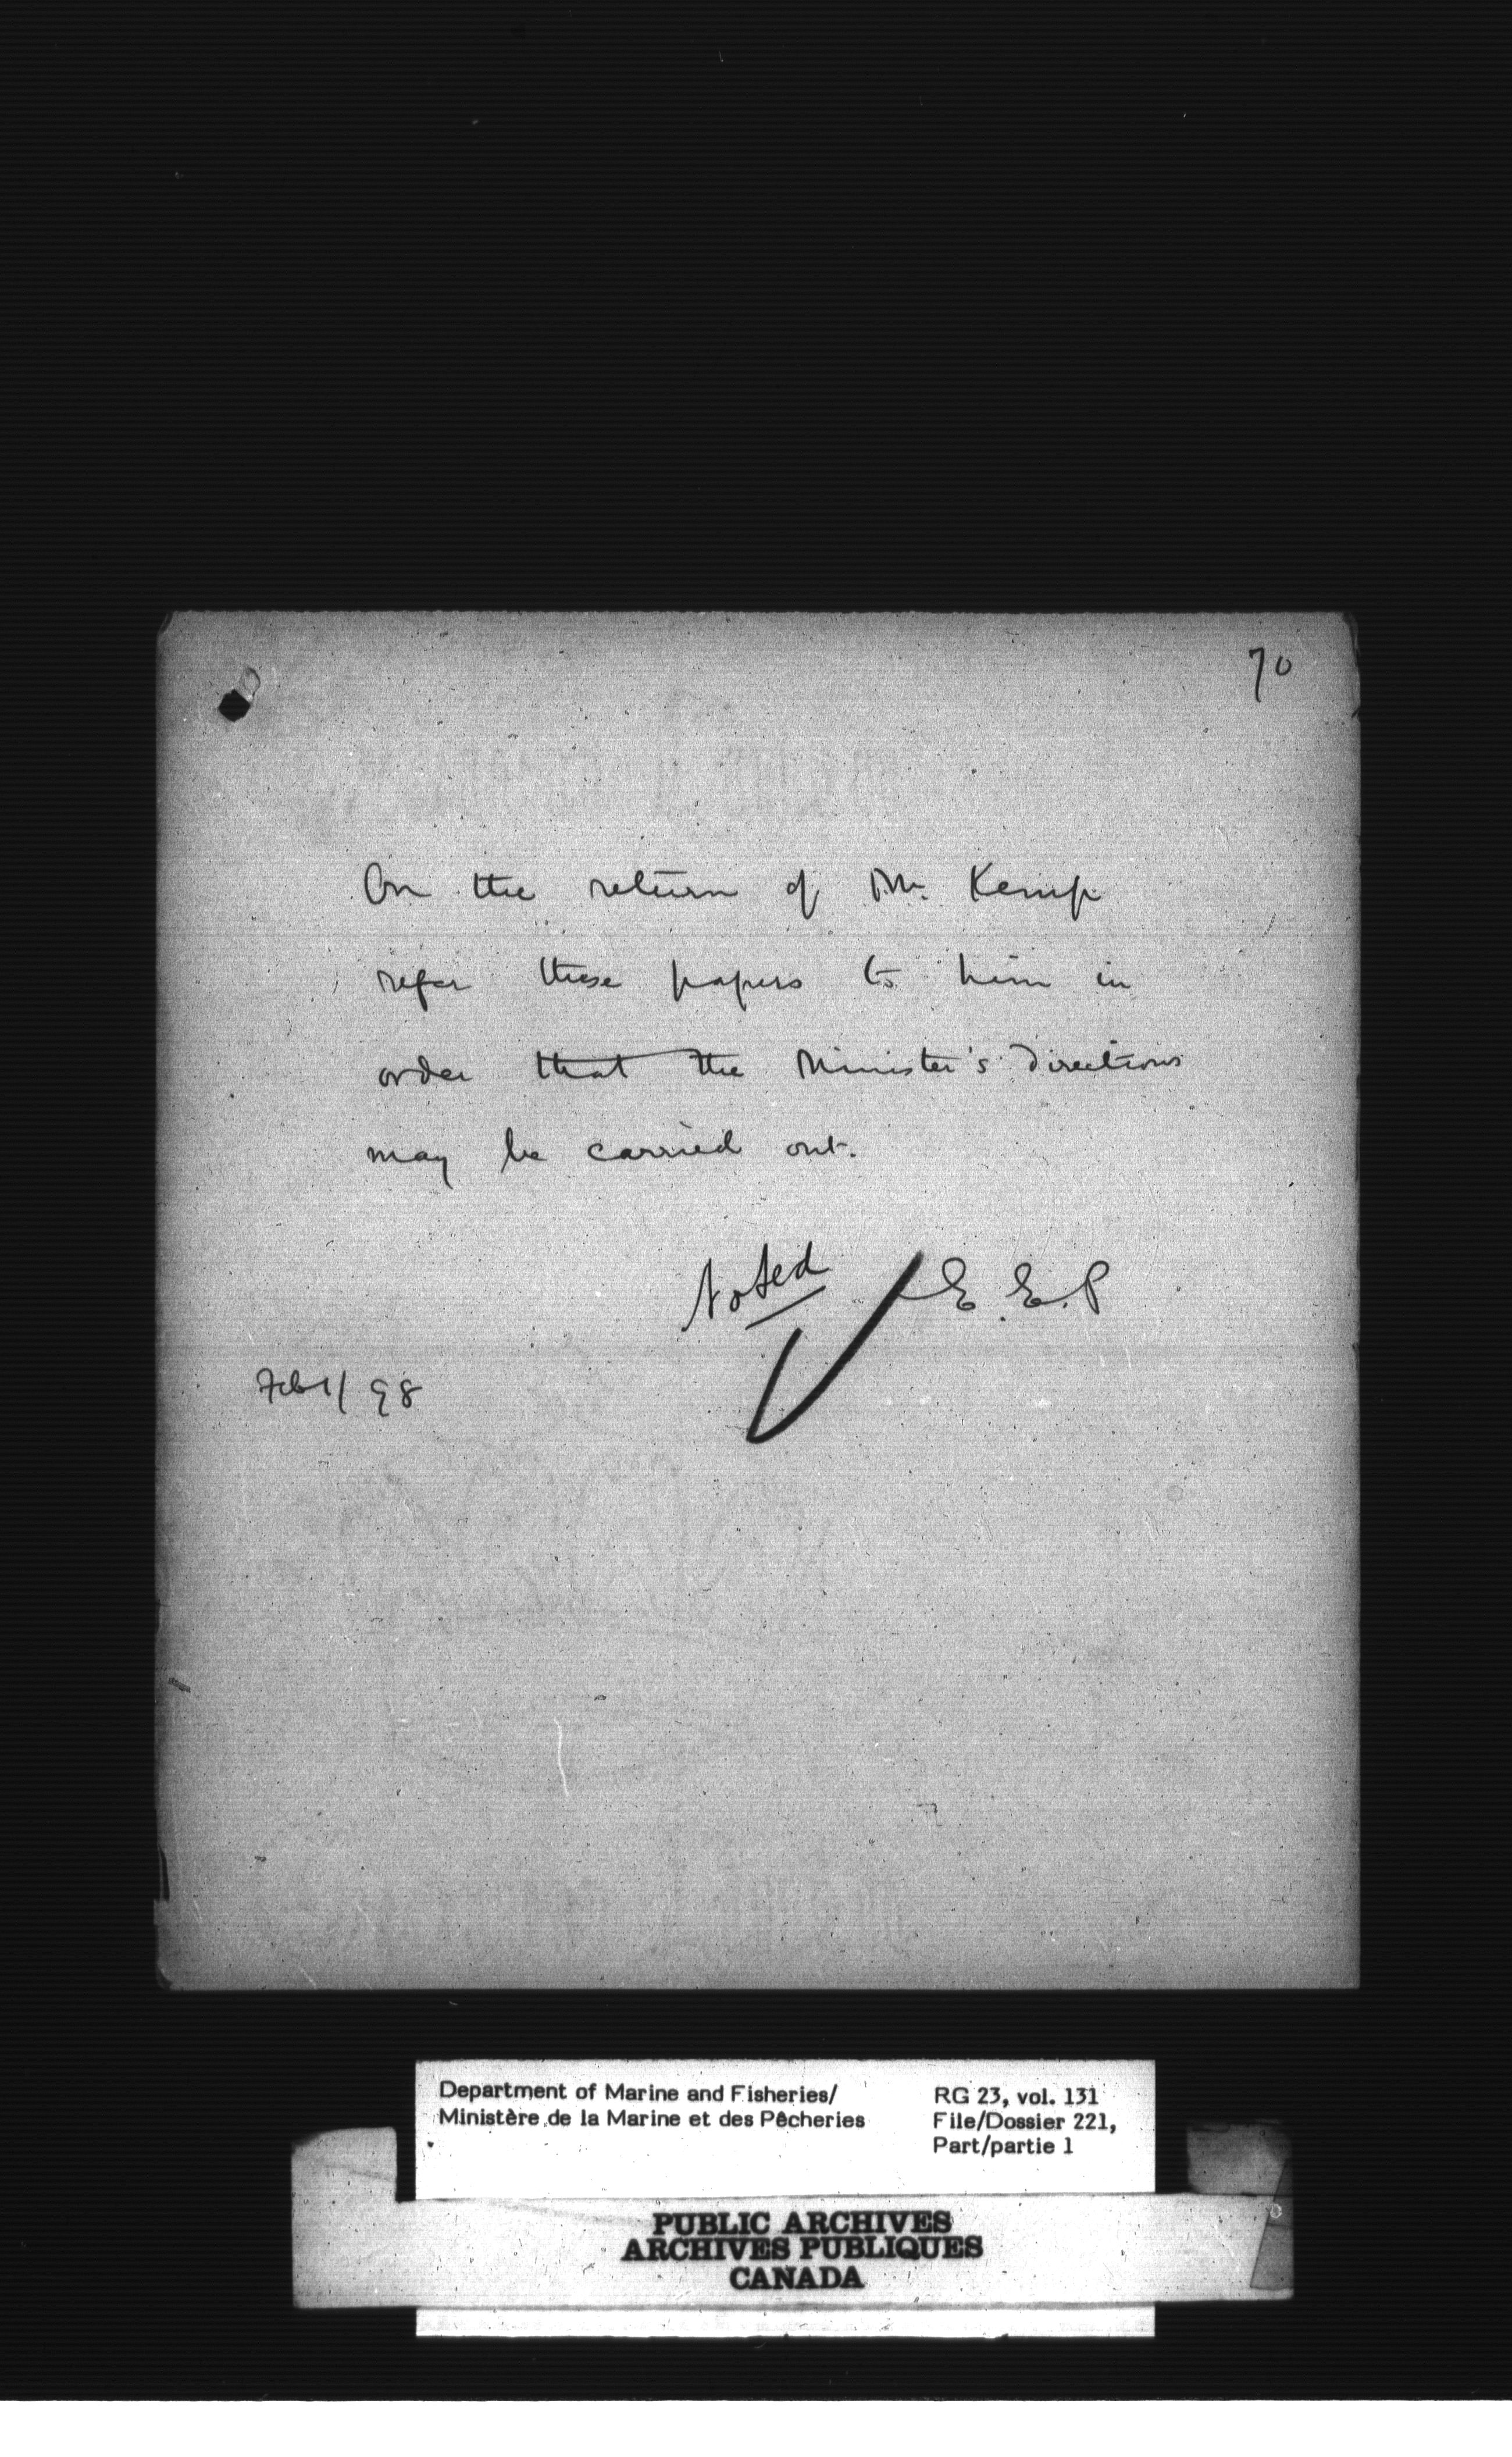 70
On the return of Mr. Kemp
refer these papers to him in
order that the Minister's directions
may be carried out.
Noted
E. E. P
Feb 1/98
Department of Marine and Fisheries/
Ministère de la Marine et des Pêcheries
RG 23, vol. 131
File/Dossier 221,
Part/partie 1
PUBLIC ARCHIVES
ARCHIVES PUBLIQUES
CANADA